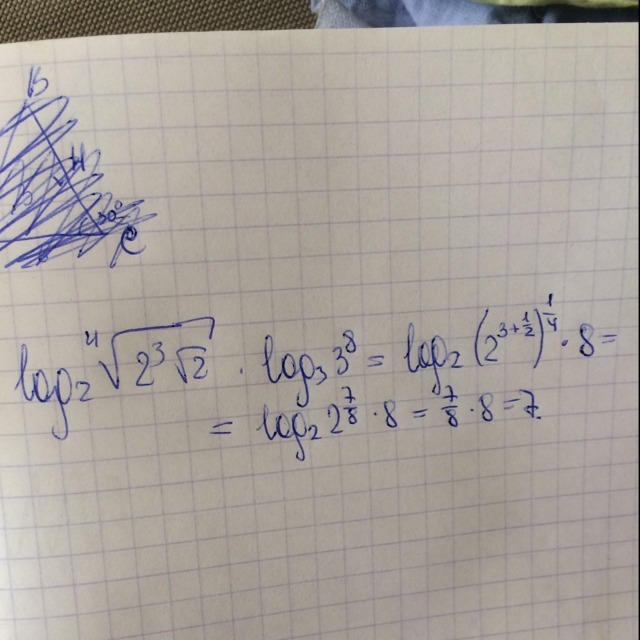 B
H
30°
C
log₂ ⁴√(2³√2) · log₃ 3⁸ = log₂ (2^(3+1/2))^(1/4) · 8 =
= log₂ 2^(7/8) · 8 = 7/8 · 8 = 7